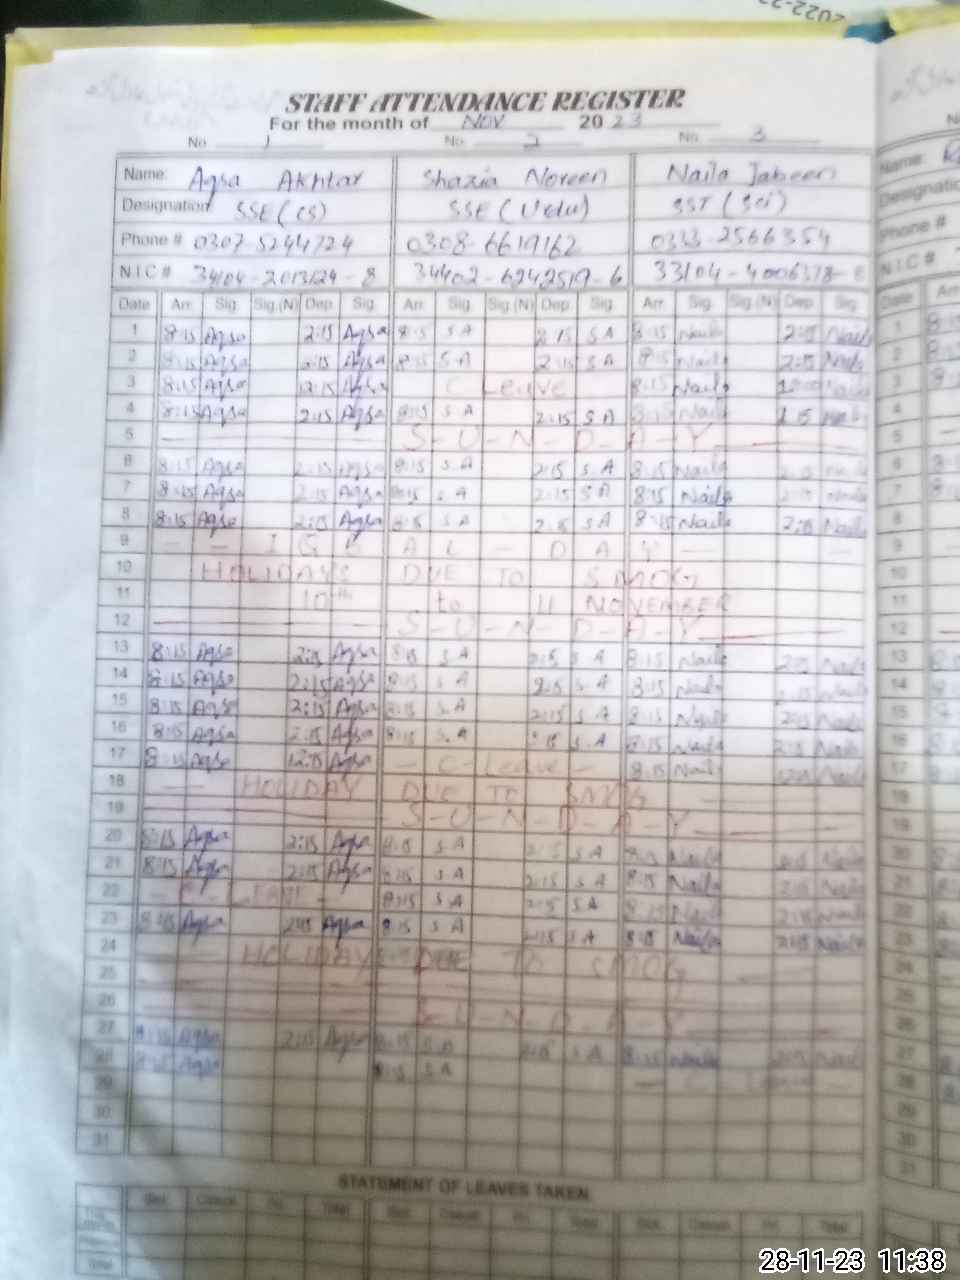 STAFF ATTENDANCE REGISTER
For the month of NOV 2023
No 1 No 2 No 3
Name: Aqsa Akhtar Shazia Noreen Naila Jabeen
Designation SSE (CS) SSE (Urdu) SST (Sci)
Phone # 0307-5244724 0308-6619162 0333-2566354
N.I.C #
Date Arr. Sig. Sig.(N) Dep. Sig. Arr. Sig. Sig.(N) Dep. Sig. Arr. Sig. Sig.(N) Dep. Sig.
1 8:15 Aqsa 2:15 Aqsa 8:15 S.A 2:15 S A 8:15 Naila 2:15 Naila
2 8:15 Aqsa 2:15 Aqsa 8:15 S.A 2:15 S A 8:15 Naila 2:15 Naila
3 8:15 Aqsa 12:15 Aqsa C Leave 8:15 Naila Naila
4 8:15 Aqsa 2:15 Aqsa 8:15 S.A 2:15 S A 8:15 Naila Naila
5 S-U-N-D-A-Y
6 8:15 Aqsa 2:15 Aqsa 8:15 S.A 2:15 S.A 8:15 Naila 2:15 Naila
7 8:15 Aqsa 2:15 Aqsa 8:15 S.A 2:15 S A 8:15 Naila 2:15 Naila
8 8:15 Aqsa 2:15 Aqsa 8:15 S.A 2:15 S A 8:15 Naila 2:15 Naila
9 I Q B A L - D A Y
10 HOLIDAYS DUE TO SMOG
11 10th to 11 NOVEMBER
12 S-U-N-D-A-Y
13 8:15 Aqsa 2:15 Aqsa 8:15 S.A 2:15 S A 8:15 Naila 2:15 Naila
14 8:15 Aqsa 2:15 Aqsa 8:15 S.A 2:15 S.A 8:15 Naila 2:15 Naila
15 8:15 Aqsa 2:15 Aqsa 8:15 S.A 2:15 S A 8:15 Naila 2:15 Naila
16 8:15 Aqsa 2:15 Aqsa 8:15 S.A 2:15 S.A 8:15 Naila 2:15 Naila
17 8:15 Aqsa 12:15 Aqsa - C-Leave - 8:15 Naila Naila
18 HOLIDAY DUE TO SMOG
19 S-U-N-D-A-Y
20 8:15 Aqsa 2:15 Aqsa 8:15 S.A 2:15 S A 8:15 Naila 2:15 Naila
21 8:15 Aqsa 2:15 Aqsa 8:15 S.A 2:15 S A 8:15 Naila 2:15 Naila
22 LEAVE 8:15 S.A 2:15 S.A 8:15 Naila 2:15 Naila
23 8:15 Aqsa 2:15 Aqsa 8:15 S.A 2:15 S A 8:15 Naila 2:15 Naila
24 HOLIDAY DUE TO SMOG
25
26 S-U-N-D-A-Y
27 8:15 Aqsa 2:15 Aqsa 8:15 S.A 2:15 S A 8:15 Naila 2:15 Naila
28 8:15 Aqsa 8:15 S.A C Leave
29
30
31
STATEMENT OF LEAVES TAKEN
Total
28-11-23 11:38